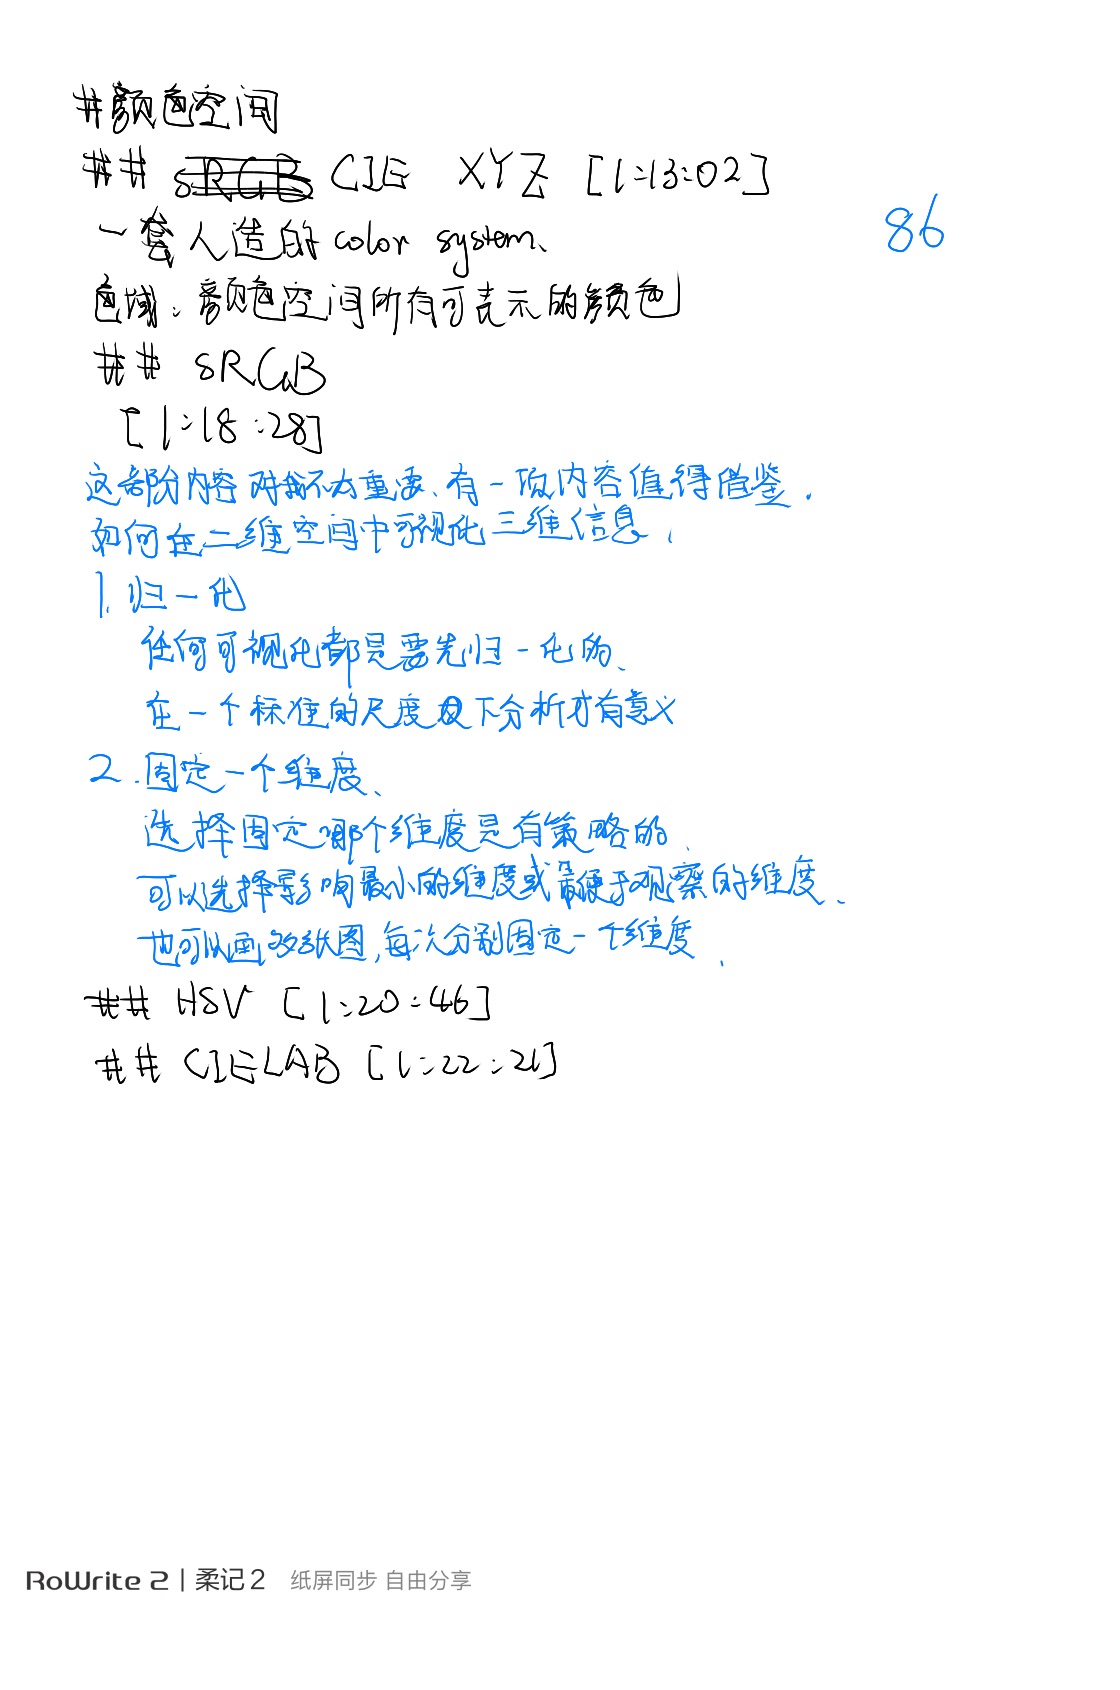 #颜色空间
## sRGB CIE XYZ [1:13:02]
86
一套人造的color system、
色域：颜色空间所有可表示的颜色
## sRGB
[1:18:28]
这部分内容对我不太重要、有一项内容值得借鉴.
如何在二维空间中可视化三维信息.
1. 归一化
任何可视化都是要先归一化的、
在一个标准的尺度下分析才有意义
2. 固定一个维度、
选择固定哪个维度是有策略的.
可以选择影响最小的维度或最便于观察的维度、
也可以画多张图,每次分别固定一个维度.
## HSV [1:20:46]
## CIELAB [1:22:21]
RoWrite 2 | 柔记2 纸屏同步 自由分享